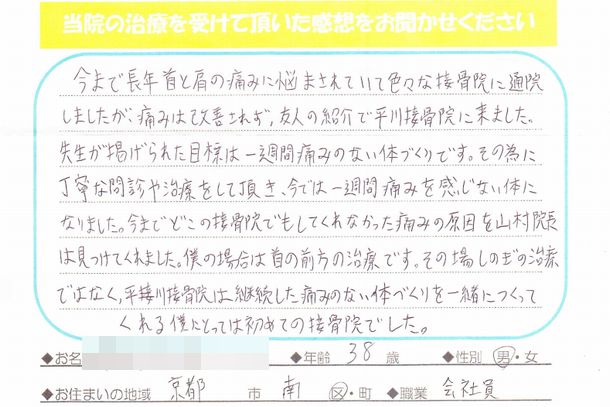 当院の治療を受けて頂いた感想をお聞かせください
今まで長年首と肩の痛みに悩まされていて色々な接骨院に通院
しましたが、痛みは改善されず、友人の紹介で平川接骨院に来ました。
先生が掲げられた目標は一週間痛みのない体づくりです。その為に
丁寧な問診や治療をして頂き、今では一週間痛みを感じない体に
なりました。今までどこの接骨院でもしてくれなかった痛みの原因を山村院長
は見つけてくれました。僕の場合は首の前方の治療です。その場しのぎの治療
ではなく、平接川接骨院は継続した痛みのない体づくりを一緒につくって
くれる僕にとっては初めての接骨院でした。
◆お名 ◆年齢 38 歳 ◆性別 男・女
◆お住まいの地域 京都 市 南 区・町 ◆職業 会社員